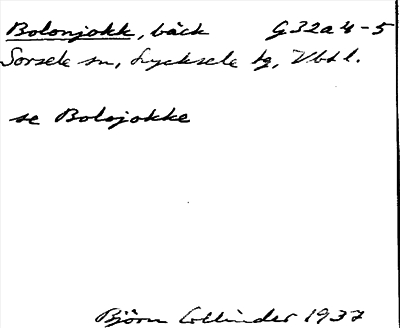 Bolonjokk, bäck G32a4-5
Sorsele sn, Lycksele tg, Vbtl.
se Bolojokke
Björn Collinder 1937